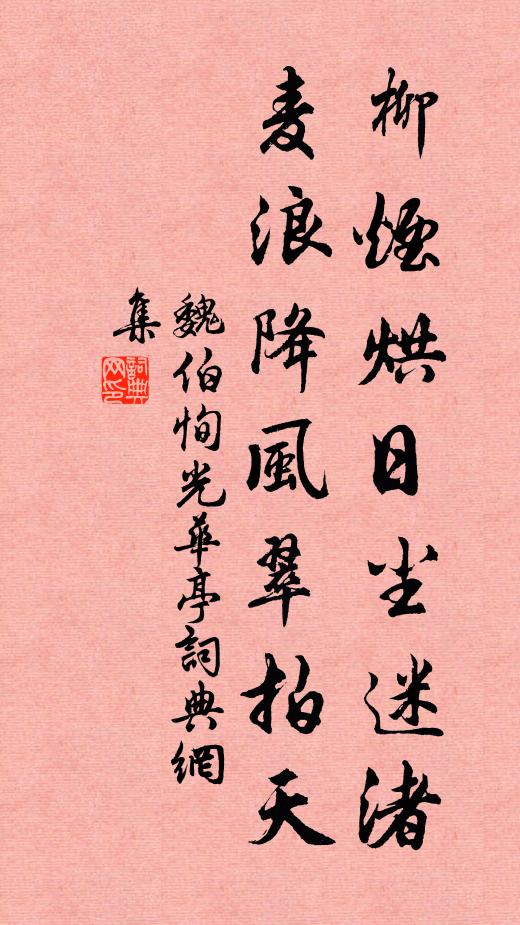 柳煙烘日尘迷渚
麦浪降風翠拍天
魏伯恂光華亭詞典網
集
詞典网印